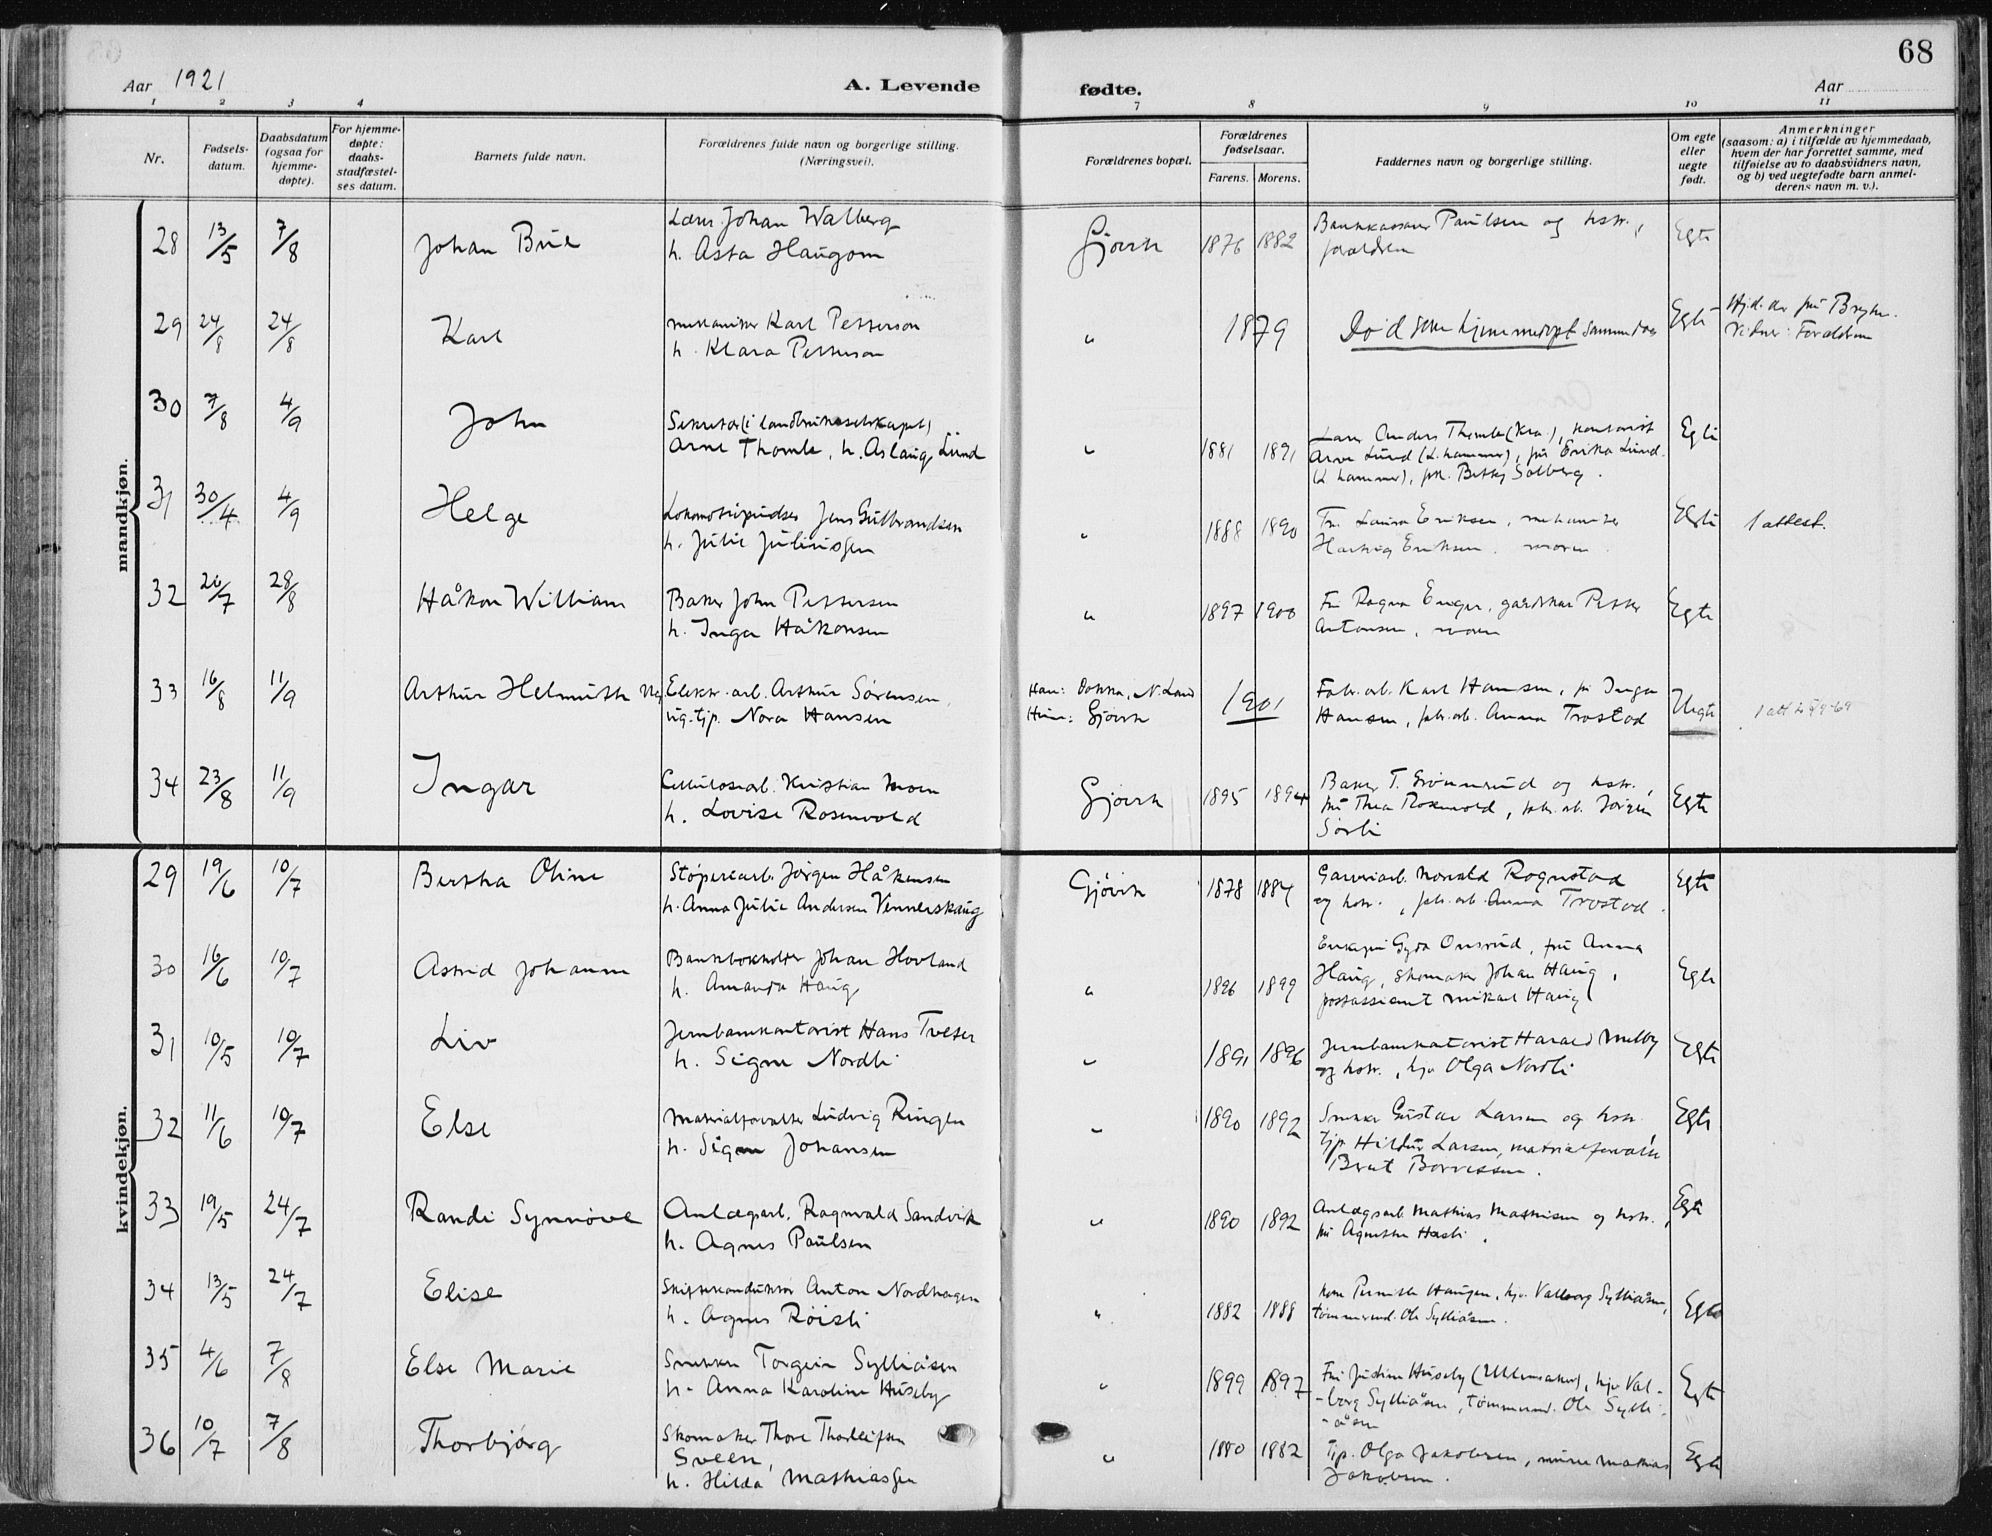 68
Aar 1921
A. Levende fødte.
Aar
1 2 3 4 7 8 9 10 11
Nr.
Fødsels-
datum.
Daabsdatum
(ogsaa for
hjemme-
døpte).
For hjemme-
døpte:
daabs-
stadfæstel-
ses datum.
Barnets fulde navn.
Forældrenes fulde navn og borgerlige stilling.
(Næringsvei).
Forældrenes bopæl.
Forældrenes
fødselsaar.
Farens. Morens.
Faddernes navn og borgerlige stilling.
Om egte
eller
uegte
født.
Anmerkninger
(saasom: a) i tilfælde av hjemmedaab,
hvem der har forrettet samme, med
tilføielse av to daabsvidners navn,
og b) ved uegtefødte barn anmel-
derens navn m. v.).
mandkjøn.
28 13/5 7/8 Johan Brie Lars Johan Walberg Gjövik 1876 1882 Bankkasserer Paulsen og hstr., Egte
h. Asta Haugom forældrene
29 24/8 24/8 Karl mekaniker Karl Petterson " 1879 Död som hjemmedöpt samme dag Egte
h. Klara Petterson Vidner: Forældrene
30 7/8 4/9 John Sekretær (i landbruksselskapet) " 1881 1891 Lars Anders Thomle (Kra.), kontorist Egte
Arne Thomle, h. Aslaug Lund Arne Lund (L.hammer), frk Erika Lund
(L hammer), frk. Betty Solberg.
31 30/4 4/9 Helge Lokomotivpudser Jens Gulbrandsen " 1888 1890 Fru Laura Eriksen, mekaniker Egte 1 attest.
h. Julie Juliussen Hartvig Eriksen, moren
32 26/7 28/8 Håkon William Baker John Pettersen " 1897 1900 Fru Ragna Enger, gårdbruker Petter Egte
h. Inga Håkonsen Antonsen, moren
33 16/8 11/9 Arthur Helmuth Elektr. arb. Arthur Sörensen, Han: Dokka, N. Land 1901 Fabr. arb. Karl Hansen, fru Inga Uegte
ug. tjp. Nora Hansen Hun: Gjövik Hansen, fabr. arb. Anna Trostad
34 23/8 11/9 Ingar Cellulosearb. Kristian Moen Gjövik 1895 1894 Baker T. Grönnerud og hstr., Egte
h. Lovise Rosenvold fru Thea Rosenvold, fabr. arb. Jörgen
Sörli
kvindekjøn.
29 19/6 10/7 Bertha Oline Støperiarb. Jörgen Håkensen Gjövik 1878 1884 Garveriarb. Harald Rognstad Egte
h. Anna Julie Andersen Vennerskaug og hstr., fabr. arb. Anna Trostad.
30 16/6 10/7 Astrid Johanne Bankbokholder Johan Hovland " 1896 1899 Enkefru Gyda Onsrud, fru Anna Egte
h. Amanda Haug Haug, skomaker Johan Haug,
postassistent Mikael Haug
31 10/5 10/7 Liv Jernbanekontorist Hans Tveter " 1891 1896 Jernbanekontorist Harald Melby Egte
h. Signe Nordli og hstr., hjv Olga Nordli
32 11/6 10/7 Else Materialforvalter Ludvig Ringen " 1890 1892 Snekker Gustav Larsen og hstr. Egte
h. Signe Johansen tjp. Hildur Larsen, materialforvalter
33 19/5 24/7 Randi Synnöve Anlægsarb. Ragnvald Sandvik " 1890 1892 Anlægsarb. Mathias Mathisen og hstr., Egte
h. Agnes Paulsen fru Agnethe Hasli.
34 13/5 24/7 Elise Skiftekonduktör Anton Nordhagen " 1882 1888 kone Pernille Haugen, hjv. Valborg Sylliåsen, Egte
h. Agnes Röisli tömmermd. Ole Sylliåsen.
35 4/6 7/8 Else Marie Snekker Torgeir Sylliåsen " 1899 1897 Fru Judine Huseby (Ullensaker), hjv Val- Egte
h. Anna Karoline Huseby -borg Sylliåsen, tömmermd. Ole Sylli-
-åsen
36 10/7 7/8 Thorbjörg Skomaker Thore Thorleifsen " 1880 1882 Tjp. Olga Jakobsen, murer Mathias Egte
Sveen, Jakobsen.
h. Hilda Mathiassen